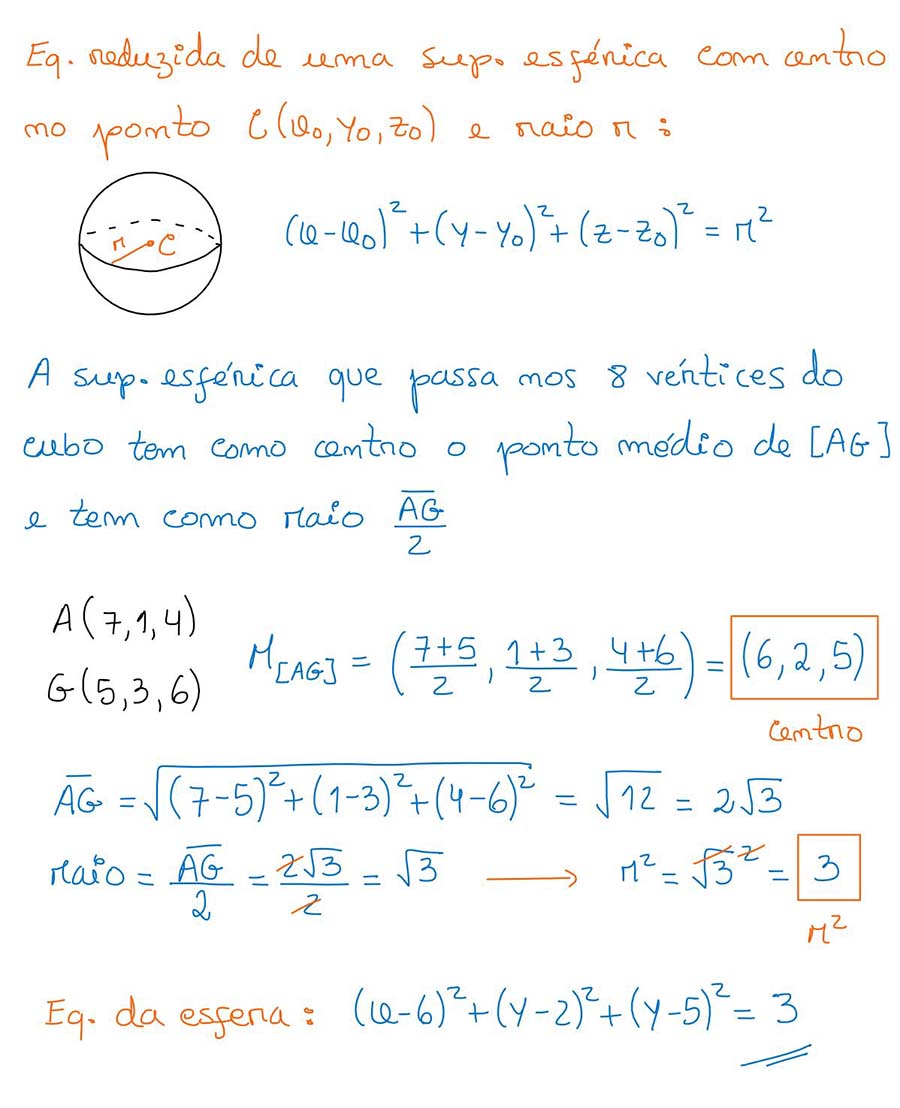 Eq. reduzida de uma sup. esférica com centro
no ponto C(x₀, y₀, z₀) e raio r :
r C
(x-x₀)² + (y-y₀)² + (z-z₀)² = r²
A sup. esférica que passa nos 8 vértices do
cubo tem como centro o ponto médio de [AG]
e tem como raio A̅G̅/2
A(7,1,4)
G(5,3,6)
M[AG] = ((7+5)/2, (1+3)/2, (4+6)/2) = (6,2,5)
centro
A̅G̅ = √((7-5)² + (1-3)² + (4-6)²) = √12 = 2√3
raio = A̅G̅/2 = 2√3/2 = √3 → r² = √3² = 3
r²
Eq. da esfera : (x-6)² + (y-2)² + (y-5)² = 3